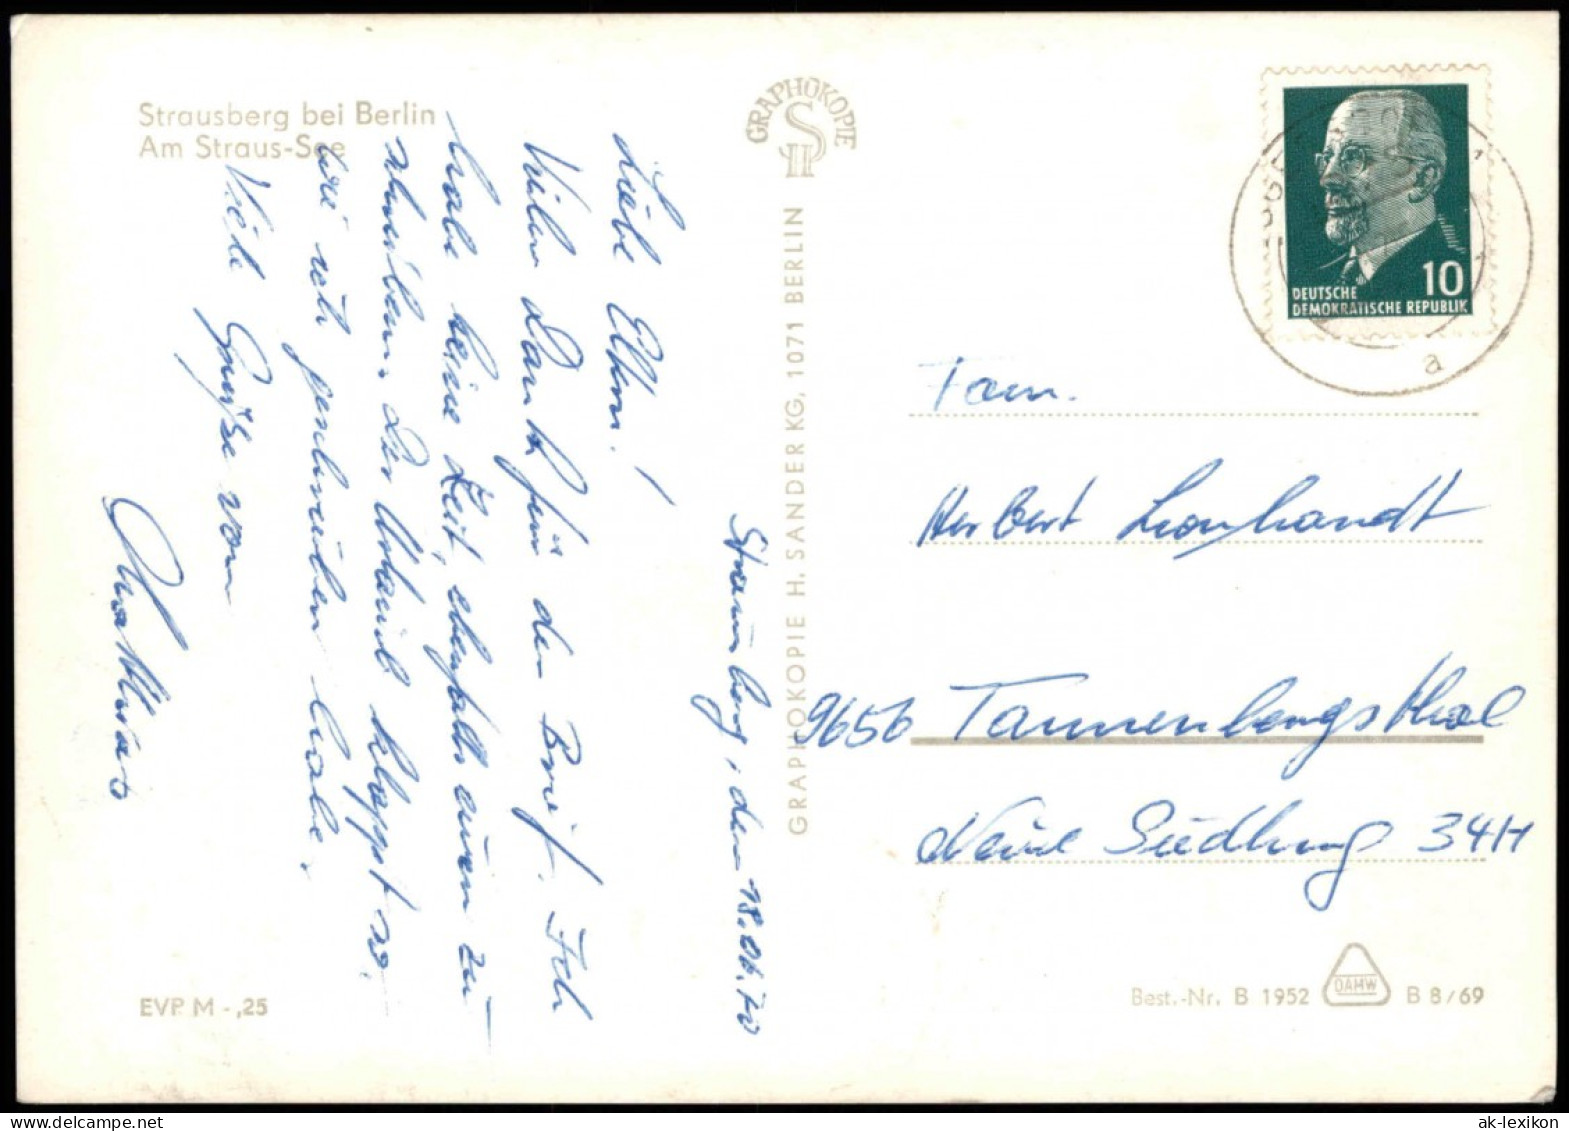 Strausberg bei Berlin
Am Straus-See
Strausberg, den 18.06.70
Liebe Eltern!
Vielen Dank für den Brief. Ich
habe keine Zeit, ebenfalls einen zu
schreiben. Der Urlaub klappt so,
wie ich geschrieben habe.
Viele Grüße von
Matthias
EVP M -,25
GRAPHOKOPIE
GRAPHOKOPIE H. SANDER KG, 1071 BERLIN
10
DEUTSCHE
DEMOKRATISCHE REPUBLIK
a
Fam.
Herbert Leonhardt
9656 Tannenbergsthal
Neue Siedlung 34H
Best.-Nr. B 1952 DAMW B 8/69
ak-lexikon